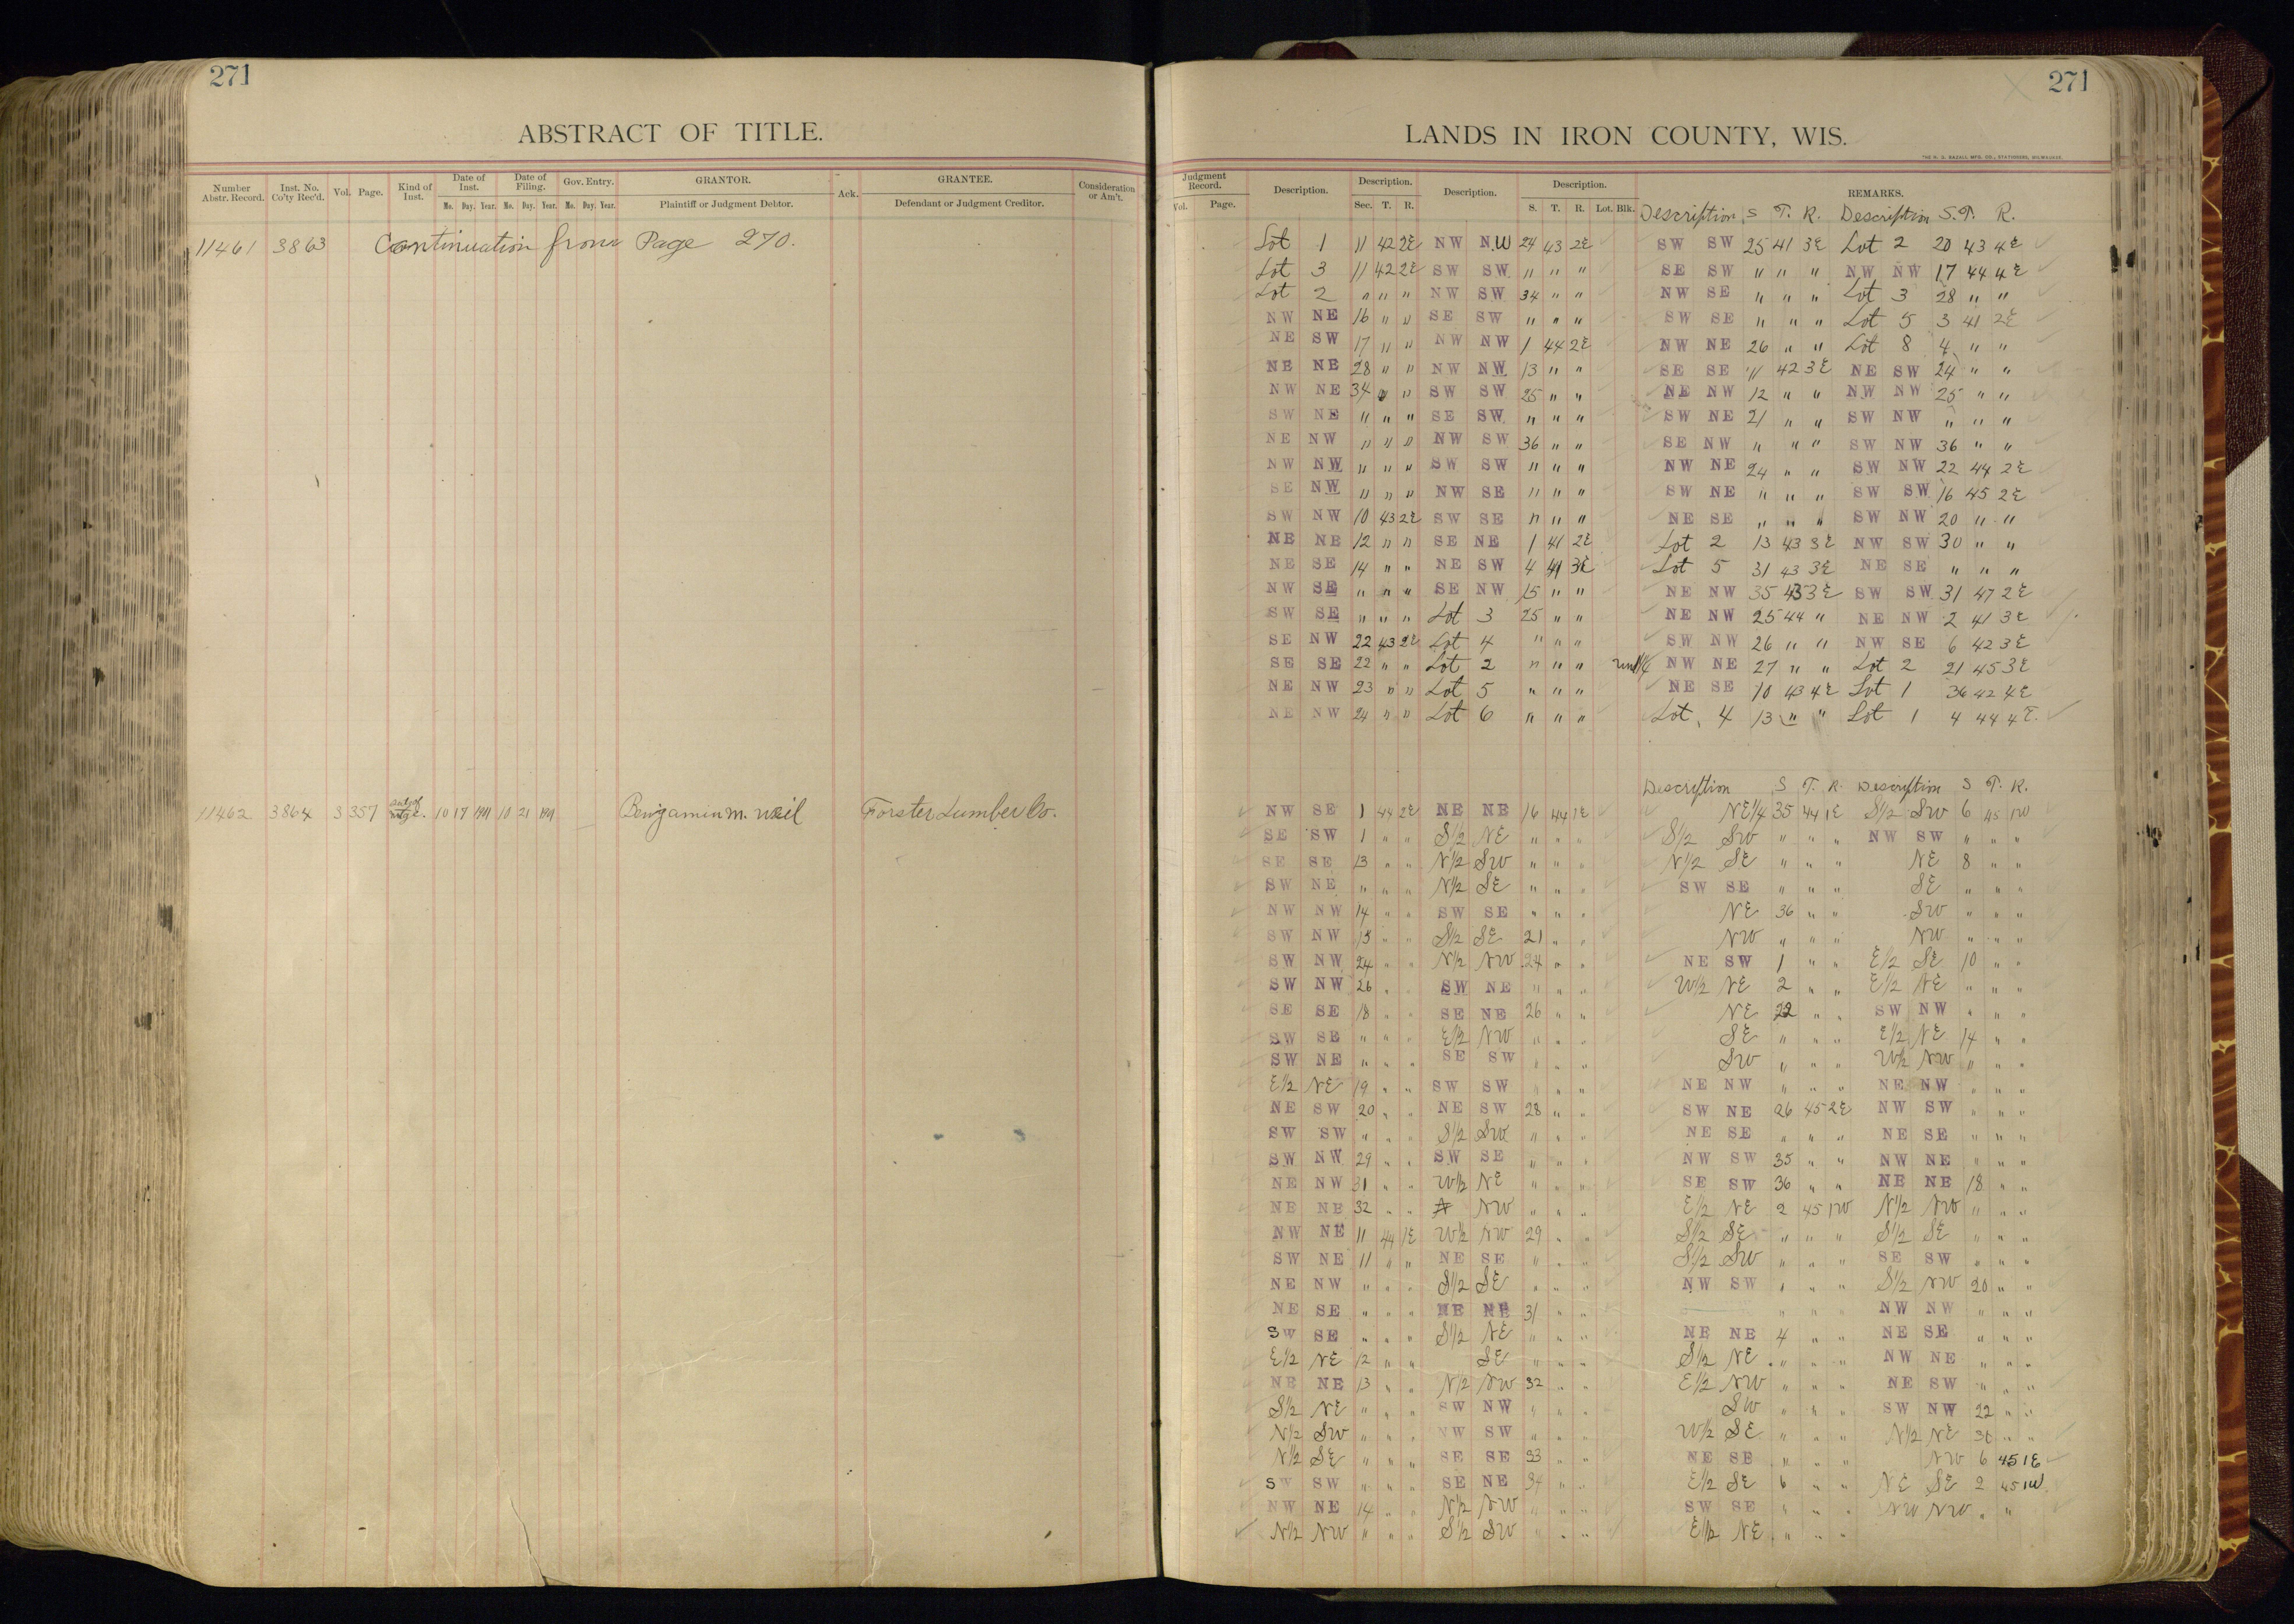 271
ABSTRACT OF TITLE.
Number Abstr. Record. Inst. No. Co'ty Rec'd. Vol. Page. Kind of Inst. Date of Inst. Mo. Day. Year. Date of Filing. Mo. Day. Year. Gov. Entry. Mo. Day. Year. GRANTOR. Plaintiff or Judgment Debtor. Ack. GRANTEE. Defendant or Judgment Creditor. Consideration or Am't.
11461 3863 Continuation from Page 270.
11462 3864 3 357 10 17 1911 10 21 1911 Benjamin M. Weil Forster Lumber Co.
271
LANDS IN IRON COUNTY, WIS.
Judgment Record. Vol. Page. Description. Description. Sec. T. R. Description. Description. S. T. R. Lot. Blk. REMARKS.
Description S T. R. Description S. T. R.
Lot 1 11 42 2E NW NW 24 43 2E SW SW 25 41 3E Lot 2 20 43 4E
Lot 3 11 42 2E SW SW " " " SE SW " " " NW NW 17 44 4E
Lot 2 " " " NW SW 34 " " NW SE " " " Lot 3 28 " "
NW NE 16 " " SE SW " " " SW SE " " " Lot 5 3 41 2E
NE SW 17 " " NW NW 1 44 2E NW NE 26 " " Lot 8 4 " "
NE NE 28 " " NW NW 13 " " SE SE 11 42 3E NE SW 24 " "
NW NE 34 " " SW SW 25 " " NE NW 12 " " NW NW 25 " "
SW NE " " " SE SW " " " SW NE 21 " " SW NW " " "
NE NW " " " NW SW 36 " " SE NW " " " SW NW 36 " "
NW NW " " " SW SW " " " NW NE 24 " " SW NW 22 44 2E
SE NW " " " NW SE " " " SW NE " " " SW SW 16 45 2E
SW NW 10 43 2E SW SE " " " NE SE " " " SW NW 20 " "
NE NE 12 " " SE NE 1 41 2E Lot 2 13 43 3E NW SW 30 " "
NE SE 14 " " NE SW 4 41 3E Lot 5 31 43 3E NE SE " " "
NW SE " " " SE NW 15 " " NE NW 35 43 3E SW SW 31 47 2E
SW SE " " " Lot 3 25 " " NE NW 25 44 " NE NW 2 41 3E
SE NW 22 43 2E Lot 4 " " " SW NW 26 " " NW SE 6 42 3E
SE SE 22 " " Lot 2 " " " NW NE 27 " " Lot 2 21 45 3E
NE NW 23 " " Lot 5 " " " NE SE 10 43 4E Lot 1 36 42 4E
NE NW 24 " " Lot 6 " " " Lot 4 13 " " Lot 1 4 44 4E
Description S T. R. Description S T. R.
NW SE 1 44 2E NE NE 16 44 1E NE1/4 35 44 1E S1/2 SW 6 45 1W
SE SW 1 " " S1/2 NE " " " S1/2 SW " " " NW SW " " "
SE SE 13 " " N1/2 SW " " " N1/2 SE " " " NE 8 " "
SW NE " " " N1/2 SE " " " SW SE " " " SE " " "
NW NW 14 " " SW SE " " " NE 36 " " SW " " "
SW NW 15 " " S1/2 SE 21 " " NW " " " NW " " "
SW NW 24 " " N1/2 NW 24 " " NE SW 1 " " E1/2 SE 10 " "
SW NW 26 " " SW NE " " " W1/2 NE 2 " " E1/2 NE " " "
SE SE 18 " " SE NE 26 " " NE 22 " " SW NW " " "
SW SE " " " E1/2 NW " " " SE " " " E1/2 NE 14 " "
SW NE " " " SE SW " " " SW " " " W1/2 NW " " "
E1/2 NE 19 " " SW SW " " " NE NW " " " NE NW " " "
NE SW 20 " " NE SW 28 " " SW NE 26 45 2E NW SW " " "
SW SW " " " S1/2 SW " " " NE SE " " " NE SE " " "
SW NW 29 " " SW SE " " " NW SW 35 " " NW NE " " "
NE NW 31 " " W1/2 NE " " " SE SW 36 " " NE NE 18 " "
NE NE 32 " " NW " " " E1/2 NE 2 45 1W N1/2 NW " " "
NW NE 11 44 1E W1/2 NW 29 " " S1/2 SE " " " S1/2 SE " " "
SW NE 11 " " NE SE " " " S1/2 SW " " " SE SW " " "
NE NW " " " S1/2 SE " " " NW SW " " " S1/2 NW 20 " "
NE SE " " " NE NE 31 " " " " " NW NW " " "
SW SE " " " S1/2 NE " " " NE NE 4 " " NE SE " " "
E1/2 NE 12 " " SE " " " S1/2 NE " " " NW NE " " "
NE NE 13 " " N1/2 NW 32 " " E1/2 NW " " " NE SW " " "
S1/2 NE " " " SW NW " " " SW " " " SW NW 22 " "
N1/2 SW " " " NW SW " " " W1/2 SE " " " N1/2 NE 30 " "
N1/2 SE " " " SE SE 33 " " NE SE " " " NW 6 45 1E
SW SW " " " SE NE 34 " " E1/2 SE 6 " " NE SE 2 45 1W
NW NE 14 " " N1/2 NW " " " SW SE " " " NW NW " "
N1/2 NW " " " S1/2 SW " " " E1/2 NE " " "